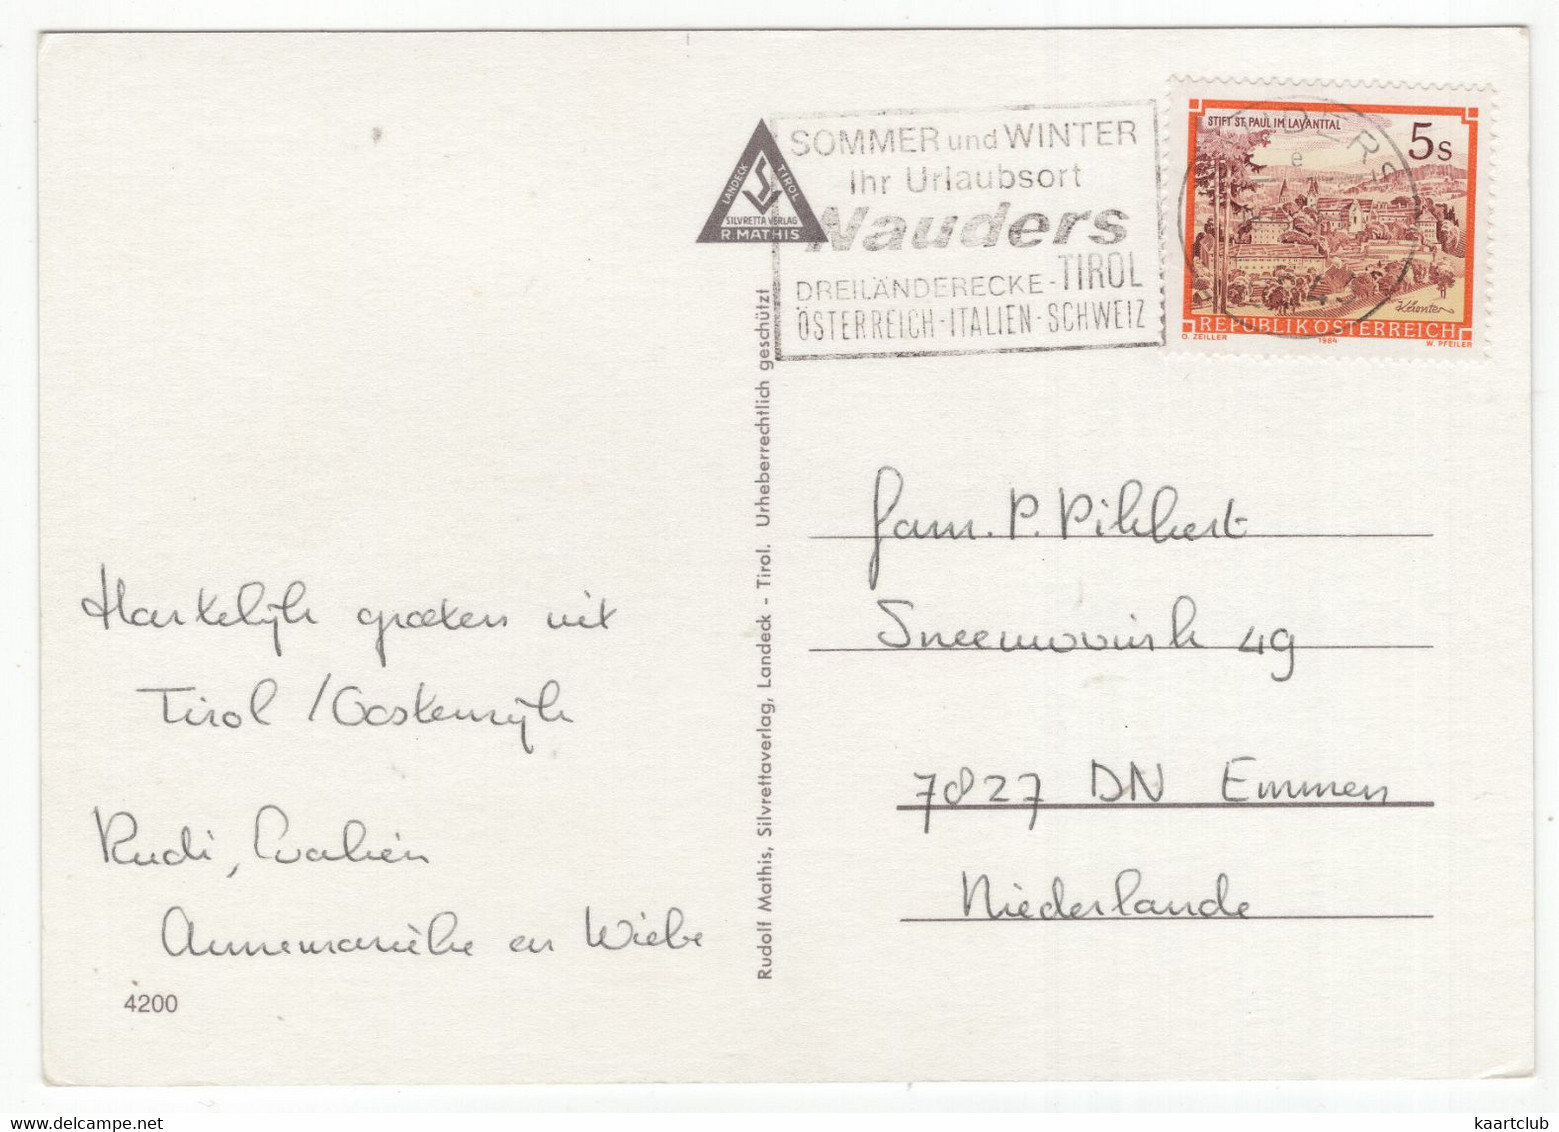 SOMMER und WINTER
Ihr Urlaubsort
Nauders
DREILÄNDERECKE-TIROL
ÖSTERREICH-ITALIEN-SCHWEIZ
LANDECK TIROL
SILVRETTA VERLAG
R. MATHIS
STIFT ST. PAUL IM LAVANTTAL
5 S
REPUBLIK ÖSTERREICH
O. ZEILLER 1984 W. PFEILER
Rudolf Mathis, Silvrettaverlag, Landeck - Tirol. Urheberrechtlich geschützt
Hartelijk groeten uit
Tirol / Oostenrijk
Rudi,
Annemarieke en Wiebe
4200
Fam. P. Pikkert
49
7827 DN Emmen
Niederlande
kaartclub